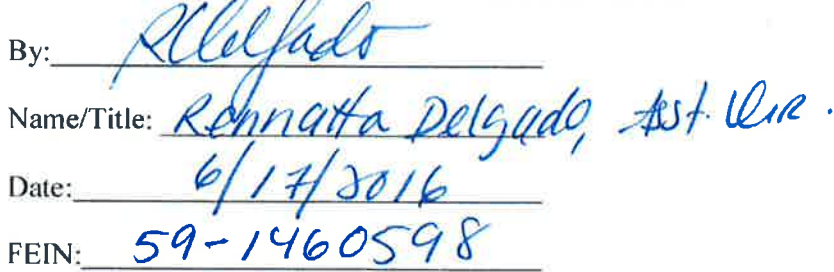 By: RDelgado
Name/Title: Rennatta Delgado, Asst. Dir.
Date: 6/17/2016
FEIN: 59-1460598